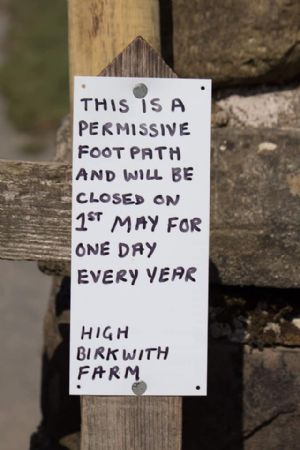 THIS IS A
PERMISSIVE
FOOTPATH
AND WILL BE
CLOSED ON
1ST MAY FOR
ONE DAY
EVERY YEAR
HIGH
BIRKWITH
FARM